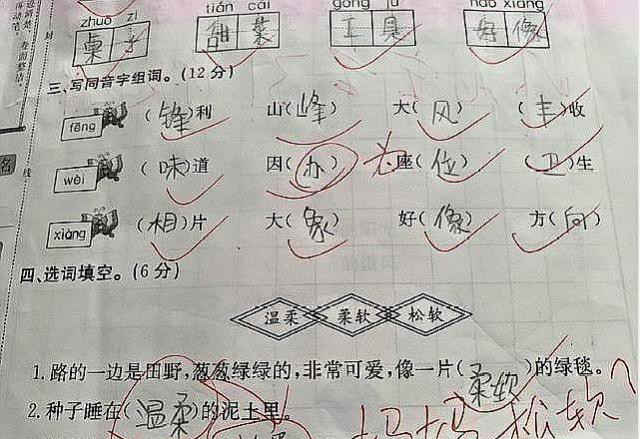 zhuō zǐ tián cài gōng jù hǎo xiàng
桌子 甜菜 工具 好像
三、写同音字组词。(12分)
fēng (锋)利 山(峰) 大(风) (丰)收
wèi (味)道 因(办)为 座(位) (卫)生
xiàng (相)片 大(象) 好(像) 方(向)
四、选词填空。(6分)
温柔 柔软 松软
1.路的一边是田野,葱葱绿绿的,非常可爱,像一片(柔软)的绿毯。
2.种子睡在(温柔)的泥土里。 松软
妈妈